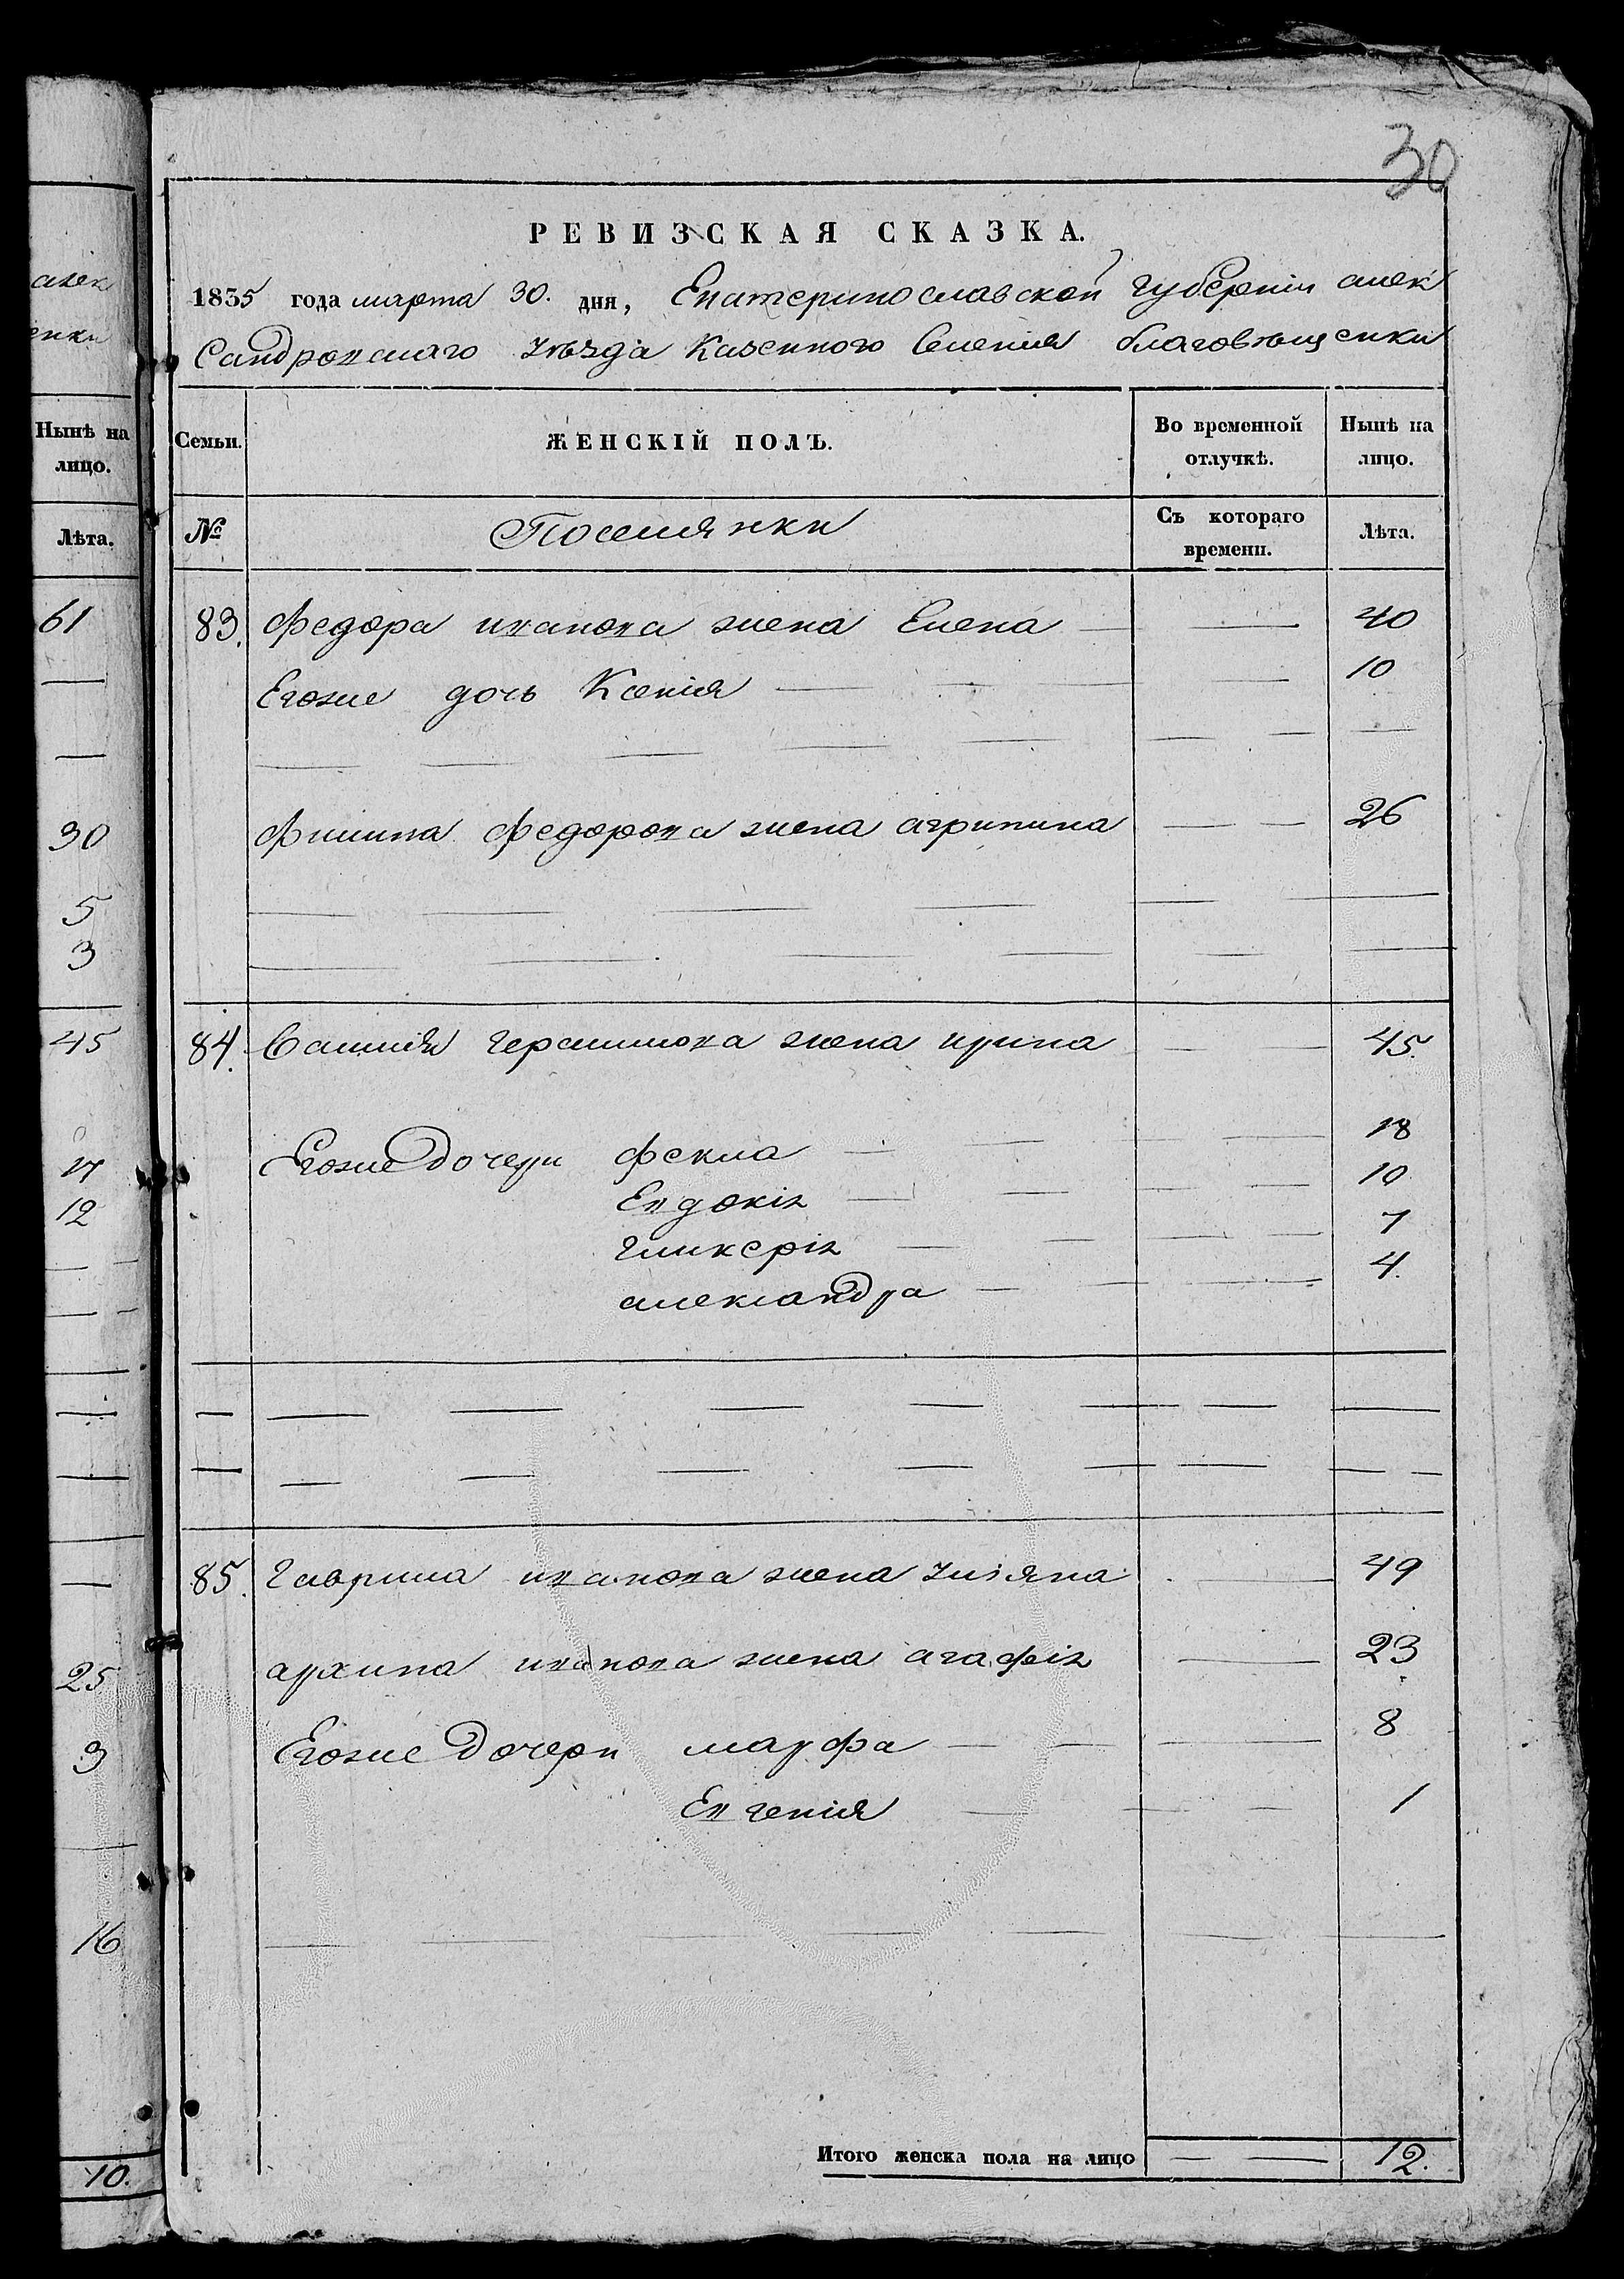 алек
енки
Нынѣ на
лицо.
Лѣта.
61
30
5
3
45
17
12
25
3
16
10.
30
РЕВИЗСКАЯ СКАЗКА.
1835 года марта 30. дня, Екатеринославской губерніи алек
сандровскаго уѣзда Казенного селенія благовѣщенки
Семьи. ЖЕНСКІЙ ПОЛЪ. Во временной отлучкѣ. Нынѣ на лицо.
№ Поселянки Съ котораго времени. Лѣта.
83. Федора иванова жена Елена 40
Егоже дочь Ксенія 10
Филипа федорова жена агрипина 26
84. Василія герасимова жена ирина 45.
Егоже дочери фекла 18
Евдокія 10
гликерія 7
александра 4.
85. Гаврила иванова жена уліяна 49
архипа иванова жена агафія 23
Егоже дочери марфа 8
Евгенія 1
Итого женска пола на лицо 12.